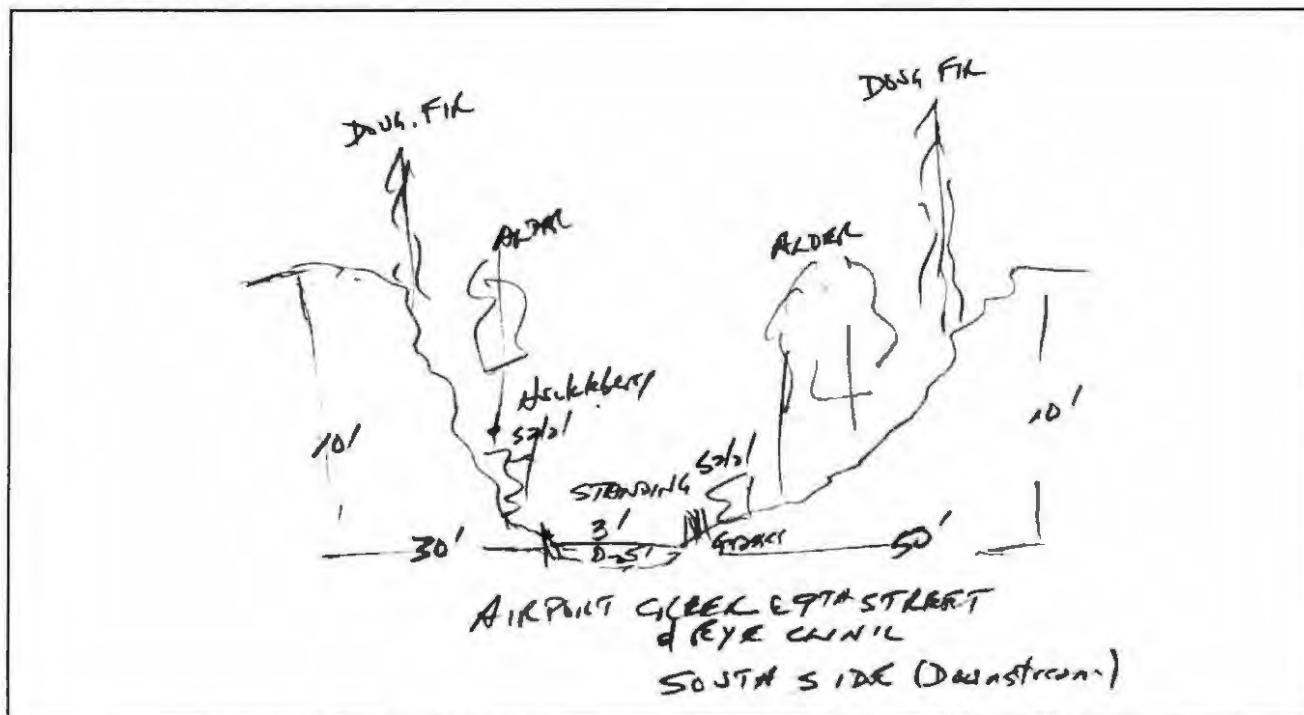 DOUG FIR
DOUG. FIR
ALDER
ALDER
Huckleberry
10'
10'
Salal
Salal
STANDING
3'
Grass
30'
50'
AIRPORT CREEK @ 9TH STREET
& EYE CLINIC
SOUTH SIDE (Downstream)